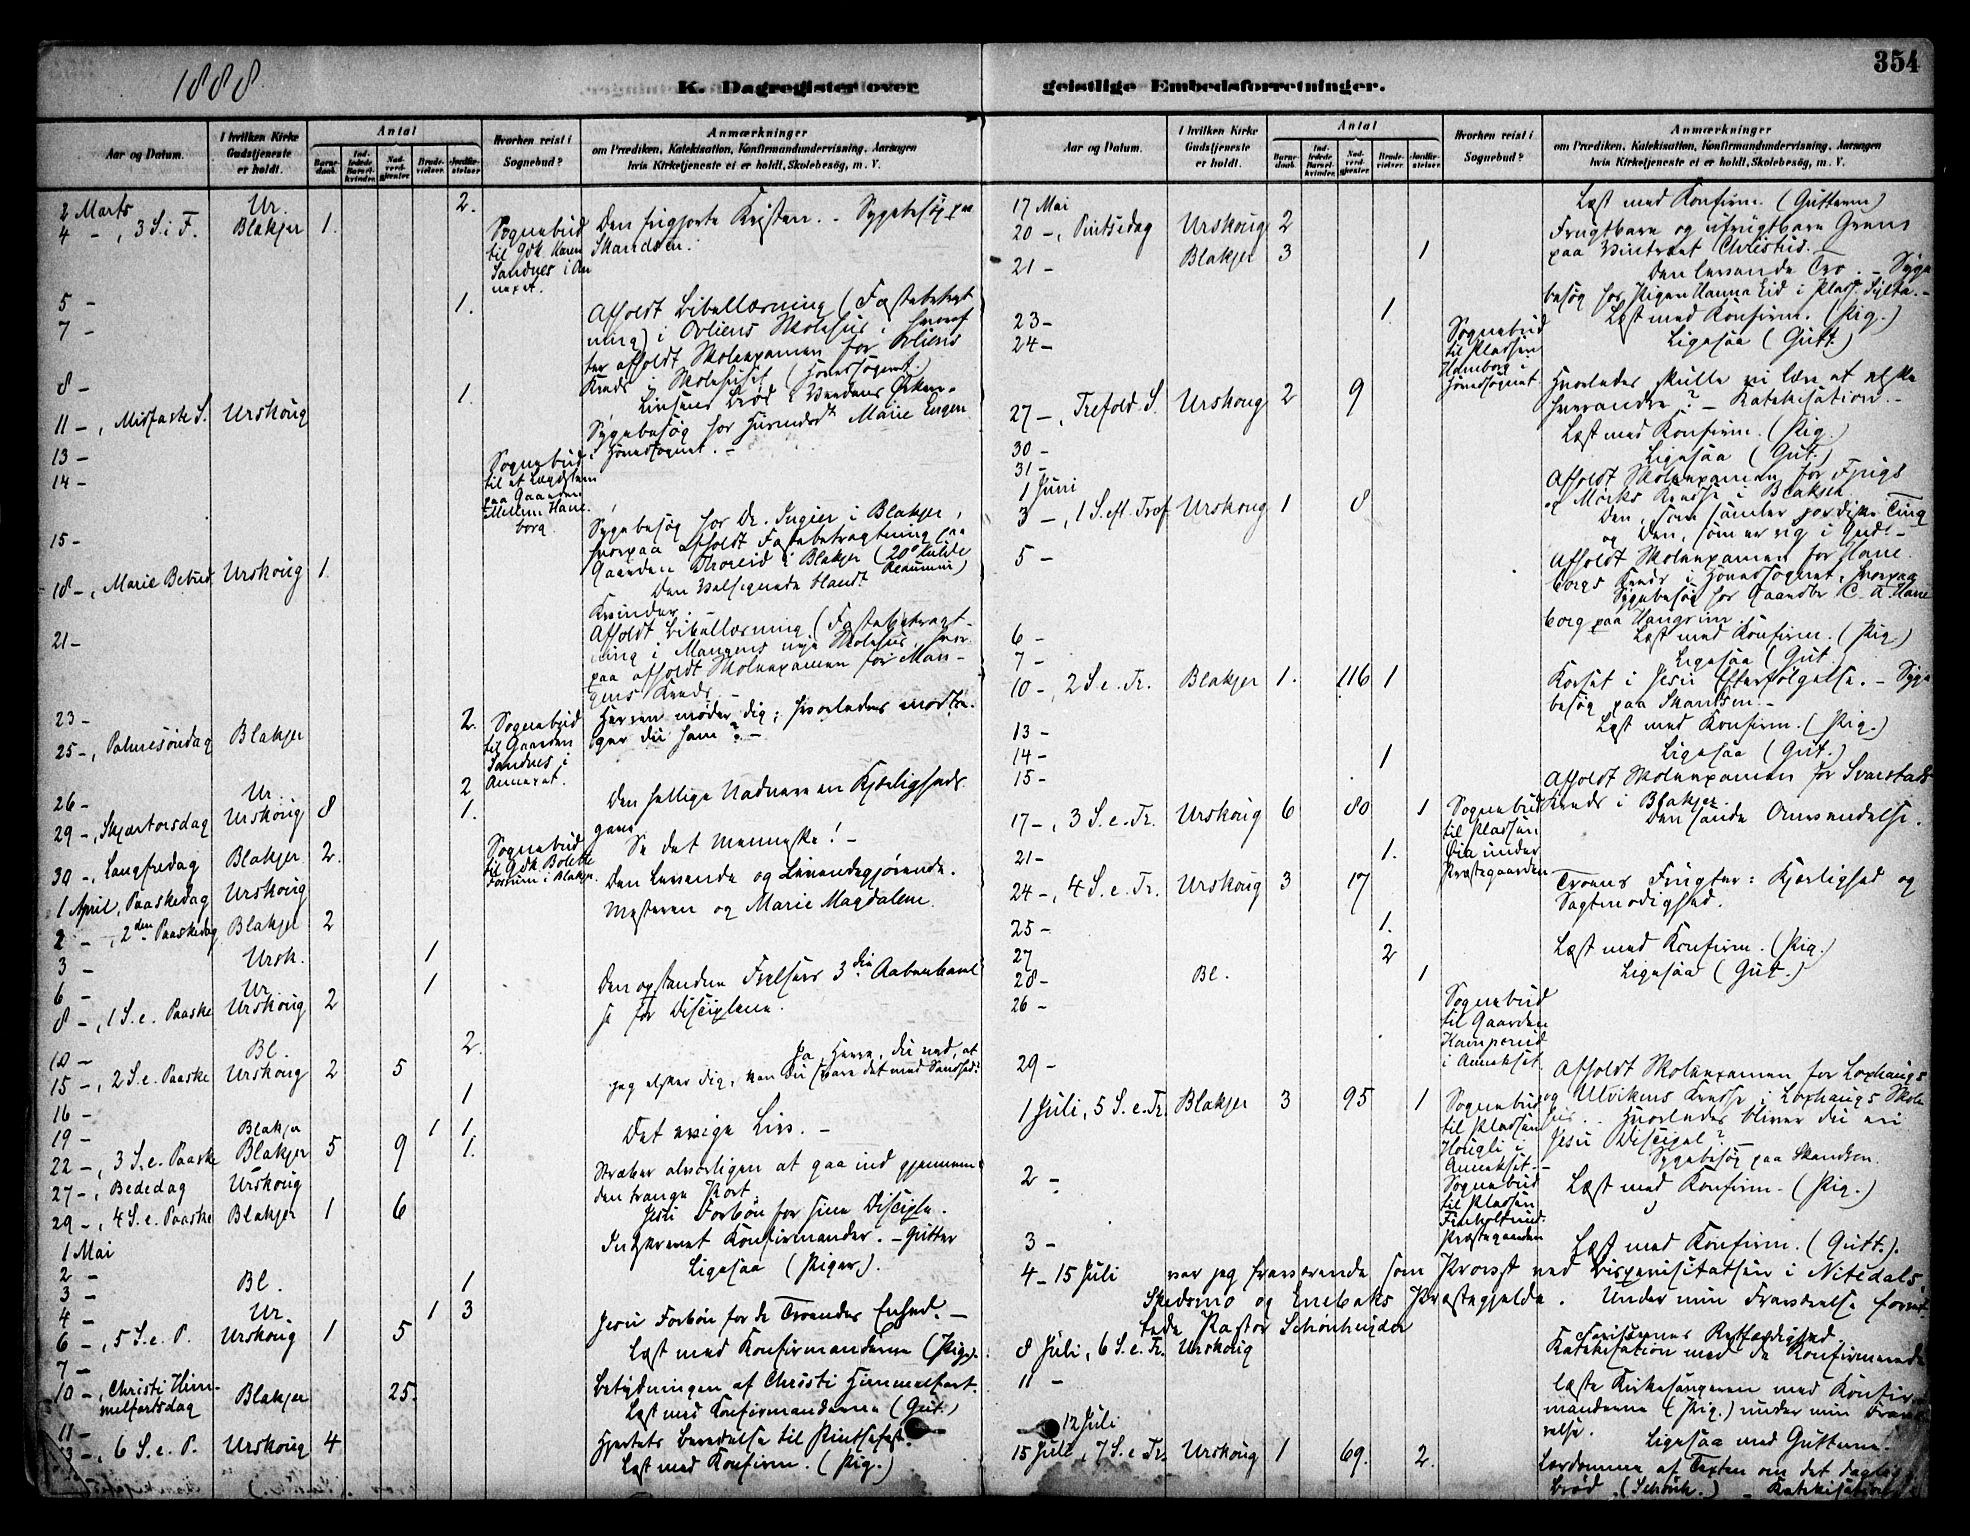 1888
354
K. Dagregister over
geistlige Embedsforretninger.
Aar og Datum.
I hvilken Kirke Gudstjeneste er holdt.
Antal
Barnedaab.
Indledede Barselkvinder.
Nadverdgjester
Brudevielser.
Jordfæstelser
Hvorhen reist i Sognebud?
Anmærkninger
om Prædiken, Katekisation, Konfirmandundervisning, Aarsagen
hvis Kirketjeneste ei er holdt, Skolebesøg, m. V.
2 Marts Ur. 2.
4 - , 3 S. i F. Blakjer 1. Sognebud til Gdk. Karen Sandnes i Annexet. Den frigjorte Kristen. - Sygebesøg paa Skandsen.
5 - 1.
7 - Afholdt Bibellæsning (Fastebetragtning) i Ovliens Skolehus, hvorefter afholdt Skoleexamen for Ovliens
8 - 1. Kreds i Skolehuset (Hovedsognet.)
11 - , Midfaste S. Urskoug Livsens Brød i Verdens Ørken.
13 - Sygebesøg hos Marie Engen i Hovedsognet. -
14 - Sognebud til et Lægdslem paa Gaarden Mellem Haneborg
15 - Sygebesøg hos Dr. Ingier i Blakjer, hvorpaa afholdt Fastebetragtning paa Gaarden i Blakjer (20° Kulde Reaumur)
18 - , Marie Bebud. Urskoug 1. Den Velsignede blandt Kvinder. -
21 - Afholdt Bibellæsning (Fastebetragtning i Mangens nye Skolehus, hvorpaa afholdt Skoleexamen for Mangens Kreds. -
23 - 2.
25 - , Palmesøndag Blakjer Sognebud til Gaarden Sandnes i Annexet. Herren møder dig; hvorledes modtager du ham? -
26 - Ur. 2
29 - , Skjærtorsdag Urskoug 8 1. Den hellige Nadvere en Kjærligheds gave
30 - , Langfredag Blakjer 2. Sognebud til Gdk. Bolette i Blakjer. Se det Menneske! -
1 April, Paaskedag Urskoug Den Levende og Levendegjørende.
2 - , 2den Paaskedag Blakjer 2 Mesteren og Marie Magdalene.
3 - Ursk. 1
6 - Ur. 1
8 - , 1 S. e. Paaske Urskoug 2 Den opstandne Frelsers 3die Aabenbarelse for Disciplene.
10 - Bl. 2.
15 - , 2 S. e. Paaske Urskoug 2 5 Ja, Herre, du ved, at jeg elsker dig, kan Du svare det med Sandhed?
16 - 1
19 - Blakjer 1 1.
22 - , 3 S. e. Paaske Blakjer 5 9 1. Det evige Liv. -
27 - , Bededag Urskoug Stræber alvorligen at gaa ind gjennem den trange Port.
29 - , 4 S. e. Paaske Blakjer 1 6 Jesu Forbøn for sine Disciple.
1 Mai Indskrevet Konfirmander. - Gutter
2 - Ligesaa (Piger).
3 - Bl. 1
4 - Ur. 1 3
6 - , 5 S. e. P. Urskoug 1 5 Jesu Forbøn for de Troendes Enhed. -
7 - Læst med Konfirmanderne (Pig.).
10 - , Christi Himmelfartsdag Blakjer 25. Betydningen af Christi Himmelfart.
11 - Læst med Konfirmanderne (Gut.)
13 - , 6 S. e. P. Urskoug 4 Hjertets Beredelse til Pintsefest.
Læst med Konfirm. (Pig.)
Aar og Datum.
I hvilken Kirke Gudstjeneste er holdt.
Antal
Barnedaab.
Indledede Barselkvinder.
Nadverdgjester
Brudevielser.
Jordfæstelser
Hvorhen reist i Sognebud?
Anmærkninger
om Prædiken, Katekisation, Konfirmandundervisning, Aarsagen
hvis Kirketjeneste ei er holdt, Skolebesøg, m. V.
17 Mai Læst med Konfirm. (Gutterne)
20 - , Pintsedag Urskoug 2 Frugtbare og ufrugtbare Grene paa Vintræet Christus. -
21 - Blakjer 3 1 Den levende Tro. - Sygebesøg hos Pigen Hanna Eid i Plads.
23 - 1 Læst med Konfirm. (Pig.)
24 - Sognebud til Pladsen Haneborg i Hovedsognet Ligesaa (Gutt.)
27 - , Trefold. S. Urskoug 2 9 Hvorledes skulle vi lære at elske hverandre? - Katekisation. -
30 - Læst med Konfirm. (Pig.)
31 - Ligesaa (Gut.)
1 Juni Afholdt Skoleexamen for og Kredse i Blakjer
3 - , 1 S. eft. Tref. Urskoug 1 8 Den, som samler jordiske Ting og Den, som er rig i Gud. -
5 - Afholdt Skoleexamen for Haneborgs Kreds i Hovedsognet, hvorpaa Sygebesøg hos Gaardbr C. A. Haneborg paa
6 - Læst med Konfirm. (Pig)
7 - Ligesaa (Gut.
10 - , 2 S. e. Tr. Blakjer 1. 116 1 Korset i Jesu Efterfølgelse. - Sygebesøg paa Skandsen. -
13 - Læst med Konfirm. (Pig.)
14 - 1 Ligesaa (Gut.)
15 - Afholdt Skoleexamen for Svarstads Kreds i Blakjer.
17 - , 3 S. e. Tr. Urskoug 6 80 1 Sognebud til Pladsen under Præstegaarden Den sande Omvendelse.
21 - 1.
24 - , 4 S. e. Tr. Urskoug 3 17 Troens Frugter: Kjærlighed og Sagtmodighed.
25 - 1.
27 2 Læst med Konfirm. (Pig.)
28 - Bl. 1 Ligesaa (Gut.)
26 - Sognebud til Gaarden i Annekset.
29 - Afholdt Skoleexamen for Loxhaugs og Ulvikens Kredse i Loxhaugs Skolehus.
1 Juli, 5 S. e. Tr. Blakjer 3 95 1 Sognebud til Pladsen Hougli i Annekset. - Hvorledes bliver du en Jesu Discipel?
Sygebesøg paa Skandsen.
2 - Sognebud til Pladsen Præstegaarden Læst med Konfirm. (Pig.)
3 - Læst med Konfirm. (Gutt.).
4 - 15 Juli var jeg fraværende som Provst ved Bispevisitatsen i Nitedals
Skedsmo og Enebaks Præstegjelde. Under min Fraværelse forrettede Pastor Schønheyder
8 Juli, 6 S. e. Tr. Urskoug Farisæernes Retfærdighed. Katekisation med de Konfirmerede
11 - læste Kirkesangeren med Konfirmanderne (Pig.) under min Fraværelse.
12 Juli Ligesaa med Gutterne.
15 Juli, 7 S. e. Tr. Urskoug 1 69. 2. Lærdomme af Texten om det daglige Brød. (Schønh.) - Katekisation